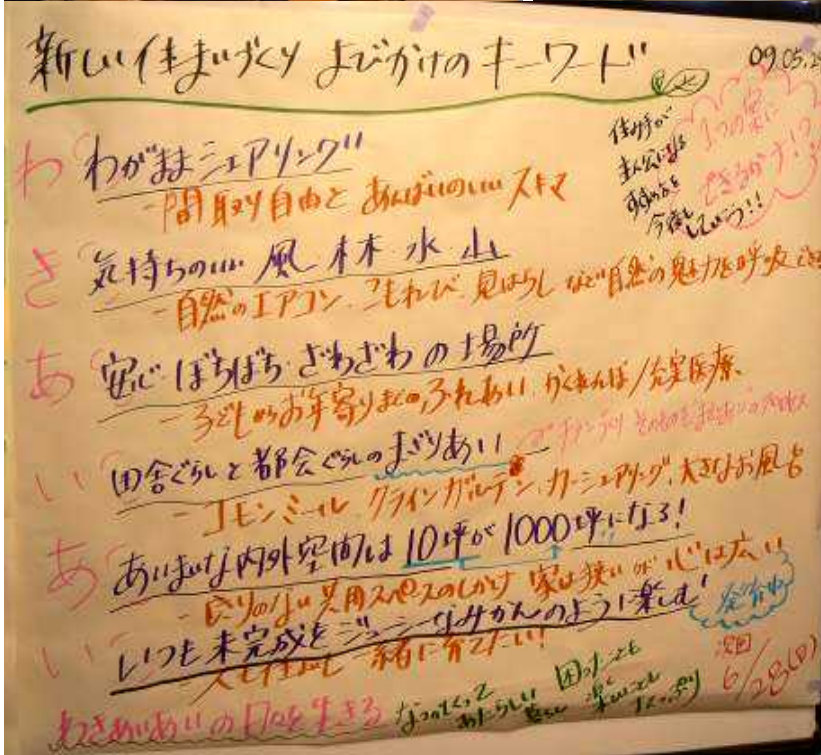 新しい住まいづくり よびかけのキーワード
09.05.2
住み手が
主人公になる
すすめ方を
今後も
していこう!!
1つの家に
できるかナ!?
わ わがままシェアリング
- 間取り自由と あんばいのいい スキマ
き 気持ちのいい 風 林 水 山
- 自然のエアコン、こもれび、見はらし など自然の魅力を呼吸
あ 安心・ぼちぼち・ざわざわ の場所
- 子どもからお年寄りまでの、ふれあい、かくれんぼ/充実医療、
い 田舎ぐらしと都会ぐらしの まざりあい
- コモンミール、クラインガルテン、カーシェアリング、大きなお風呂
あ あいまいな内外空間は 10坪が1000坪になる!
のない 共用スペースのしかけ 家は狭いが 心は広い
い いつも未完成をジューシーなみかんのように楽しむ!
一緒に育てたい!
わきあいあいの日々を生きる
あたらしい 暮らし
困ったことも
楽しいことも
たっぷり
次回
6/28(日)